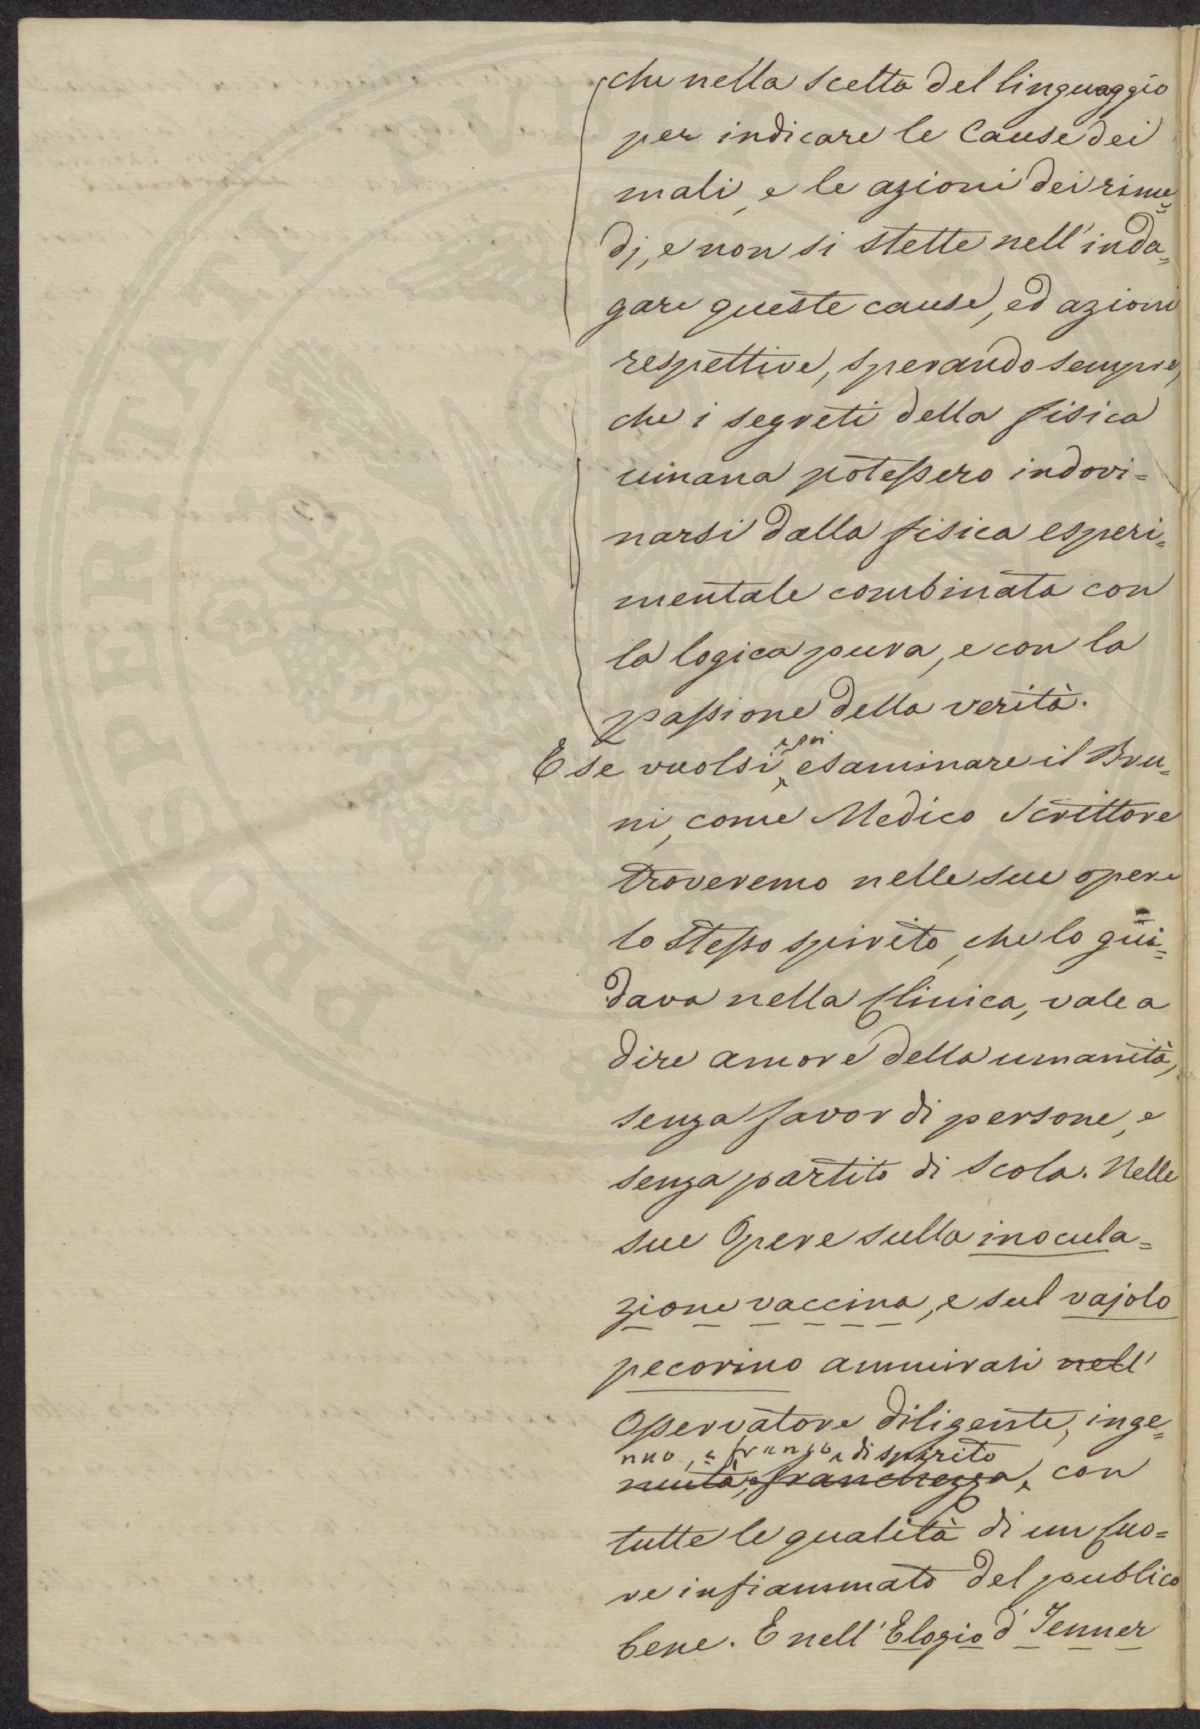 che nella scelta del linguaggio
per indicare le Cause dei
mali, e le azioni dei rime=
dj, e non si stette nell'inda=
gare queste cause, ed azioni
respettive, sperando sempre,
che i segreti della fisica
umana potessero indovi=
narsi dalla fisica esperi=
mentale combinata con
la logica pura, e con la
passione della verità.
E se vuolsi poi esaminare il Bru=
ni, come Medico Scrittore
troveremo nelle sue opere
lo stesso spirito, che lo gui=
dava nella Clinica, vale a
dire amore della umanità,
senza favor di persone, e
senza partito di Scola. Nelle
sue Opere sulla inocula=
zione vaccina, e sul vajolo
pecorino ammirasi nell'
Osservatore diligente, inge=
nuo, e franco di spirito
nuità, e franchezza, con
tutte le qualità di un Cuo=
re infiammato del pubblico
bene. E nell'Elogio d'Jenner
PRO VERITATE